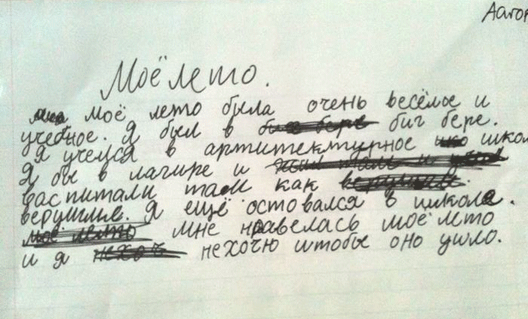 Aaron
Моё лето.
моё лето была очень весёлое и
учебное. Я был в биг бере.
Я учелся в артитектурное школ
Я бы в лагире и
распитали там как
верушые. Я ещё оставался в школа.
мне нравелась моё лето
и я нехочю штобы оно ушло.